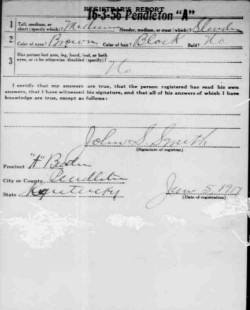 REGISTRAR'S REPORT
16-3-56 Pendleton "A"
1 Tall, medium, or short (specify which)? Medium Slender, medium, or stout (which)? Slender
2 Color of eyes? Brown Color of hair? Black Bald? No
3 Has person lost arm, leg, hand, foot, or both eyes, or is he otherwise disabled (specify)?
No
I certify that my answers are true, that the person registered has read his own answers, that I have witnessed his signature, and that all of his answers of which I have knowledge are true, except as follows:
John S. Smith
(Signature of registrar)
Precinct "A"
City or County Pendleton
State Kentucky
June 5, 1917
(Date of registration)